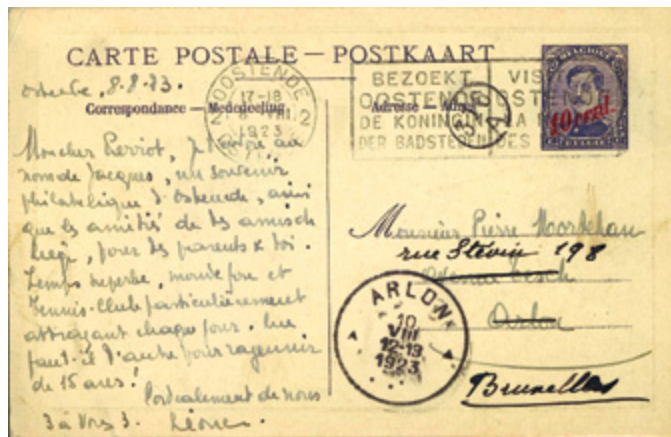 CARTE POSTALE — POSTKAART
Ostende, 8.8.23.
Correspondance — Mededeeling
Adresse — Adres
OOSTENDE
17-18
8 VIII
1923
2
BEZOEKT
OOSTENDE
DE KONINGIN
DER BADSTEDEN
BELGIQUE
10 cent.
BELGIE
Mon cher Pierrot, j'envoie au
nom de Jacques, un souvenir
philatélique d'Ostende, ainsi
que les amitiés de tes amis de
Liège, pour tes parents & toi.
Temps superbe, monde fou et
Tennis-Club particulièrement
attrayant chaque jour. Que
faut-il d'autre pour rajeunir
de 15 ans!
Cordialement de nous
3 à vous 3.
Monsieur Pierre
rue Stévin 198
Arlon
Bruxelles
ARLON
10
VIII
12-13
1923